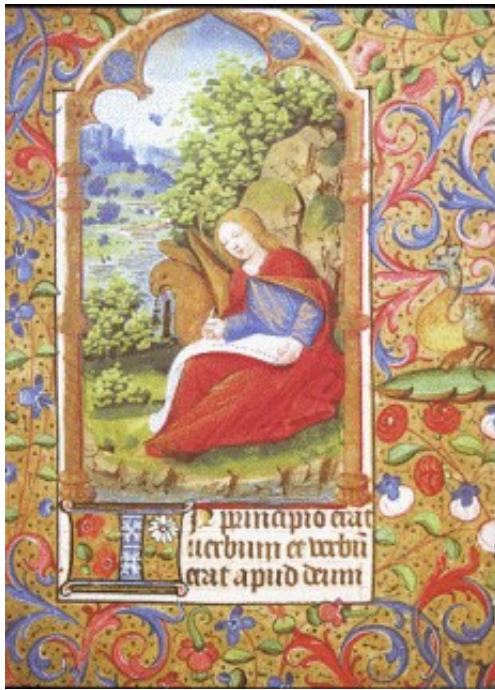 IN principio erat
uerbum et verbū
erat apud deum